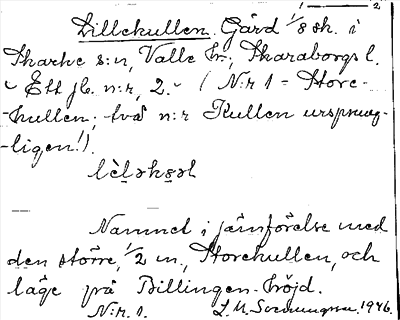 1 — 2
Lillekullen. Gård 1/8 sk. i
Skarke s:n, Valle hr., Skaraborgs l.
- Ett jb. n:r, 2. - (N:r 1 = Store-
-kullen; två n:r Kullen ursprung-
-ligen!).
lèləkəəl
Namnet i jämförelse med
den större, 1/2 m., Storekullen, och
läge på Billingen-höjd.
N:r. 1. 1946.